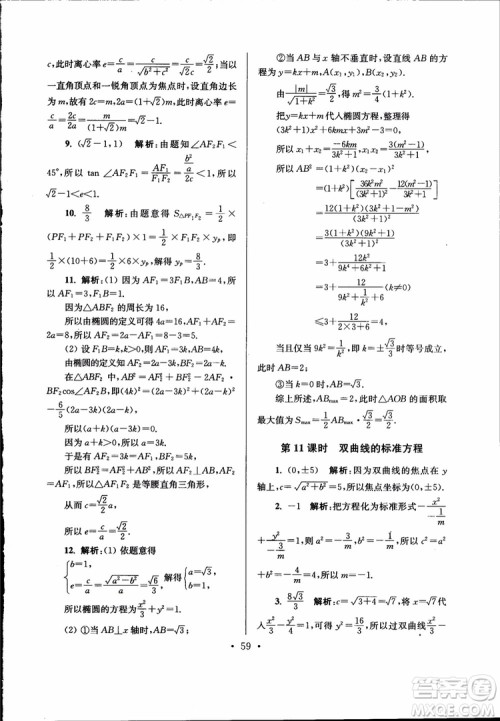 c,此时离心率 e=c/a=c/√(b²+c²)=√2/2;当以
一直角顶点和一锐角顶点为焦点时,设直角边长
为 m,故有 2c=m,2a=(1+√2)m,所以,离心率 e=
c/a=2c/2a=m/((1+√2)m)=√2-1.
9. (√2-1,1) 解析:由题意知∠AF₂F₁<
45°,所以 tan ∠AF₂F₁=AF₁/F₁F₂=(b²/a)/2c<1,所以
√2-1<e<1.
10. 8/3 解析:由题意得 S△PF₁F₂=1/2×
(PF₁+PF₂+F₁F₂)×1=1/2×F₁F₂×y_P,即
1/2×16×1=1/2×6×y_P,解得 y_P=8/3.
11. 解析:(1) 因为 AF₁=3F₁B,AB=4,
所以 AF₁=3,F₁B=1.
因为△ABF₂ 的周长为 16,
所以由椭圆的定义可得 4a=16,AF₁+AF₂=
2a=8,所以 AF₂=5.
(2) 设 F₁B=k,k>0,则 AF₁=3k,AB=4k.
由椭圆的定义知:AF₂=2a-3k,BF₂=2a-k.
在△ABF₂ 中,由余弦定理得 AB²=AF₂²+BF₂²-2AF₂·
BF₂cos∠AF₂B,即(4k)²=(2a-3k)²+(2a-k)²
-6/5(2a-3k)·(2a-k).
所以(a+k)(a-3k)=0.
而 a+k>0,所以 a=3k.
于是有 AF₂=3k=AF₁,BF₂=5k.
所以 BF₂²=AF₂²+AB²,所以 AF₁⊥AF₂,所
以△AF₁F₂ 为等腰直角三角形,
所以 c=√2/2a,所以 e=c/a=√2/2.
12. 解析:(1) 依题意得
{b=1, e=c/a=√(a²-b²)/a=√6/3,解得{a=√3, b=1.
所以椭圆的方程为 x²/3+y²=1.
(2) ①当 AB⊥x 轴时,AB=√3;
②当 AB 与 x 轴不垂直时,设直线 AB 的方
程为 y=kx+m,
由 |m|/√(1+k²)=√3/2,得 m²=3/4(1+k²).
把 y=kx+m 代入椭圆方程,整理得
(3k²+1)x²+6kmx+3m²-3=0,
所以 x₁+x₂=-6km/(3k²+1),x₁x₂=3(m²-1)/(3k²+1).
所以 AB²=(1+k²)(x₂-x₁)²
=(1+k²)[36k²m²/(3k²+1)²-12(m²-1)/(3k²+1)]
=3(1+k²)(9k²+1)/(3k²+1)²
=3+12k²/(9k⁴+6k²+1)
=3+12/(9k²+1/k²+6)
≤3+12/(2×3+6)=4.
当且仅当 9k²=1/k²,即 k=±√3/3时等号成立,
此时 AB=2;
③当 k=0 时,AB=√3.
综上所述,AB_max=2,此时△AOB 的面积取
最大值为 S_max=1/2×AB_max×√3/2=√3/2.
第 11 课时 双曲线的标准方程
1. (0,±5) 解析:因为双曲线的焦点在 y
轴上,c=√(a²+b²)=5,所以焦点坐标为(0,±5).
2. -1 解析:把方程化为标准形式
59